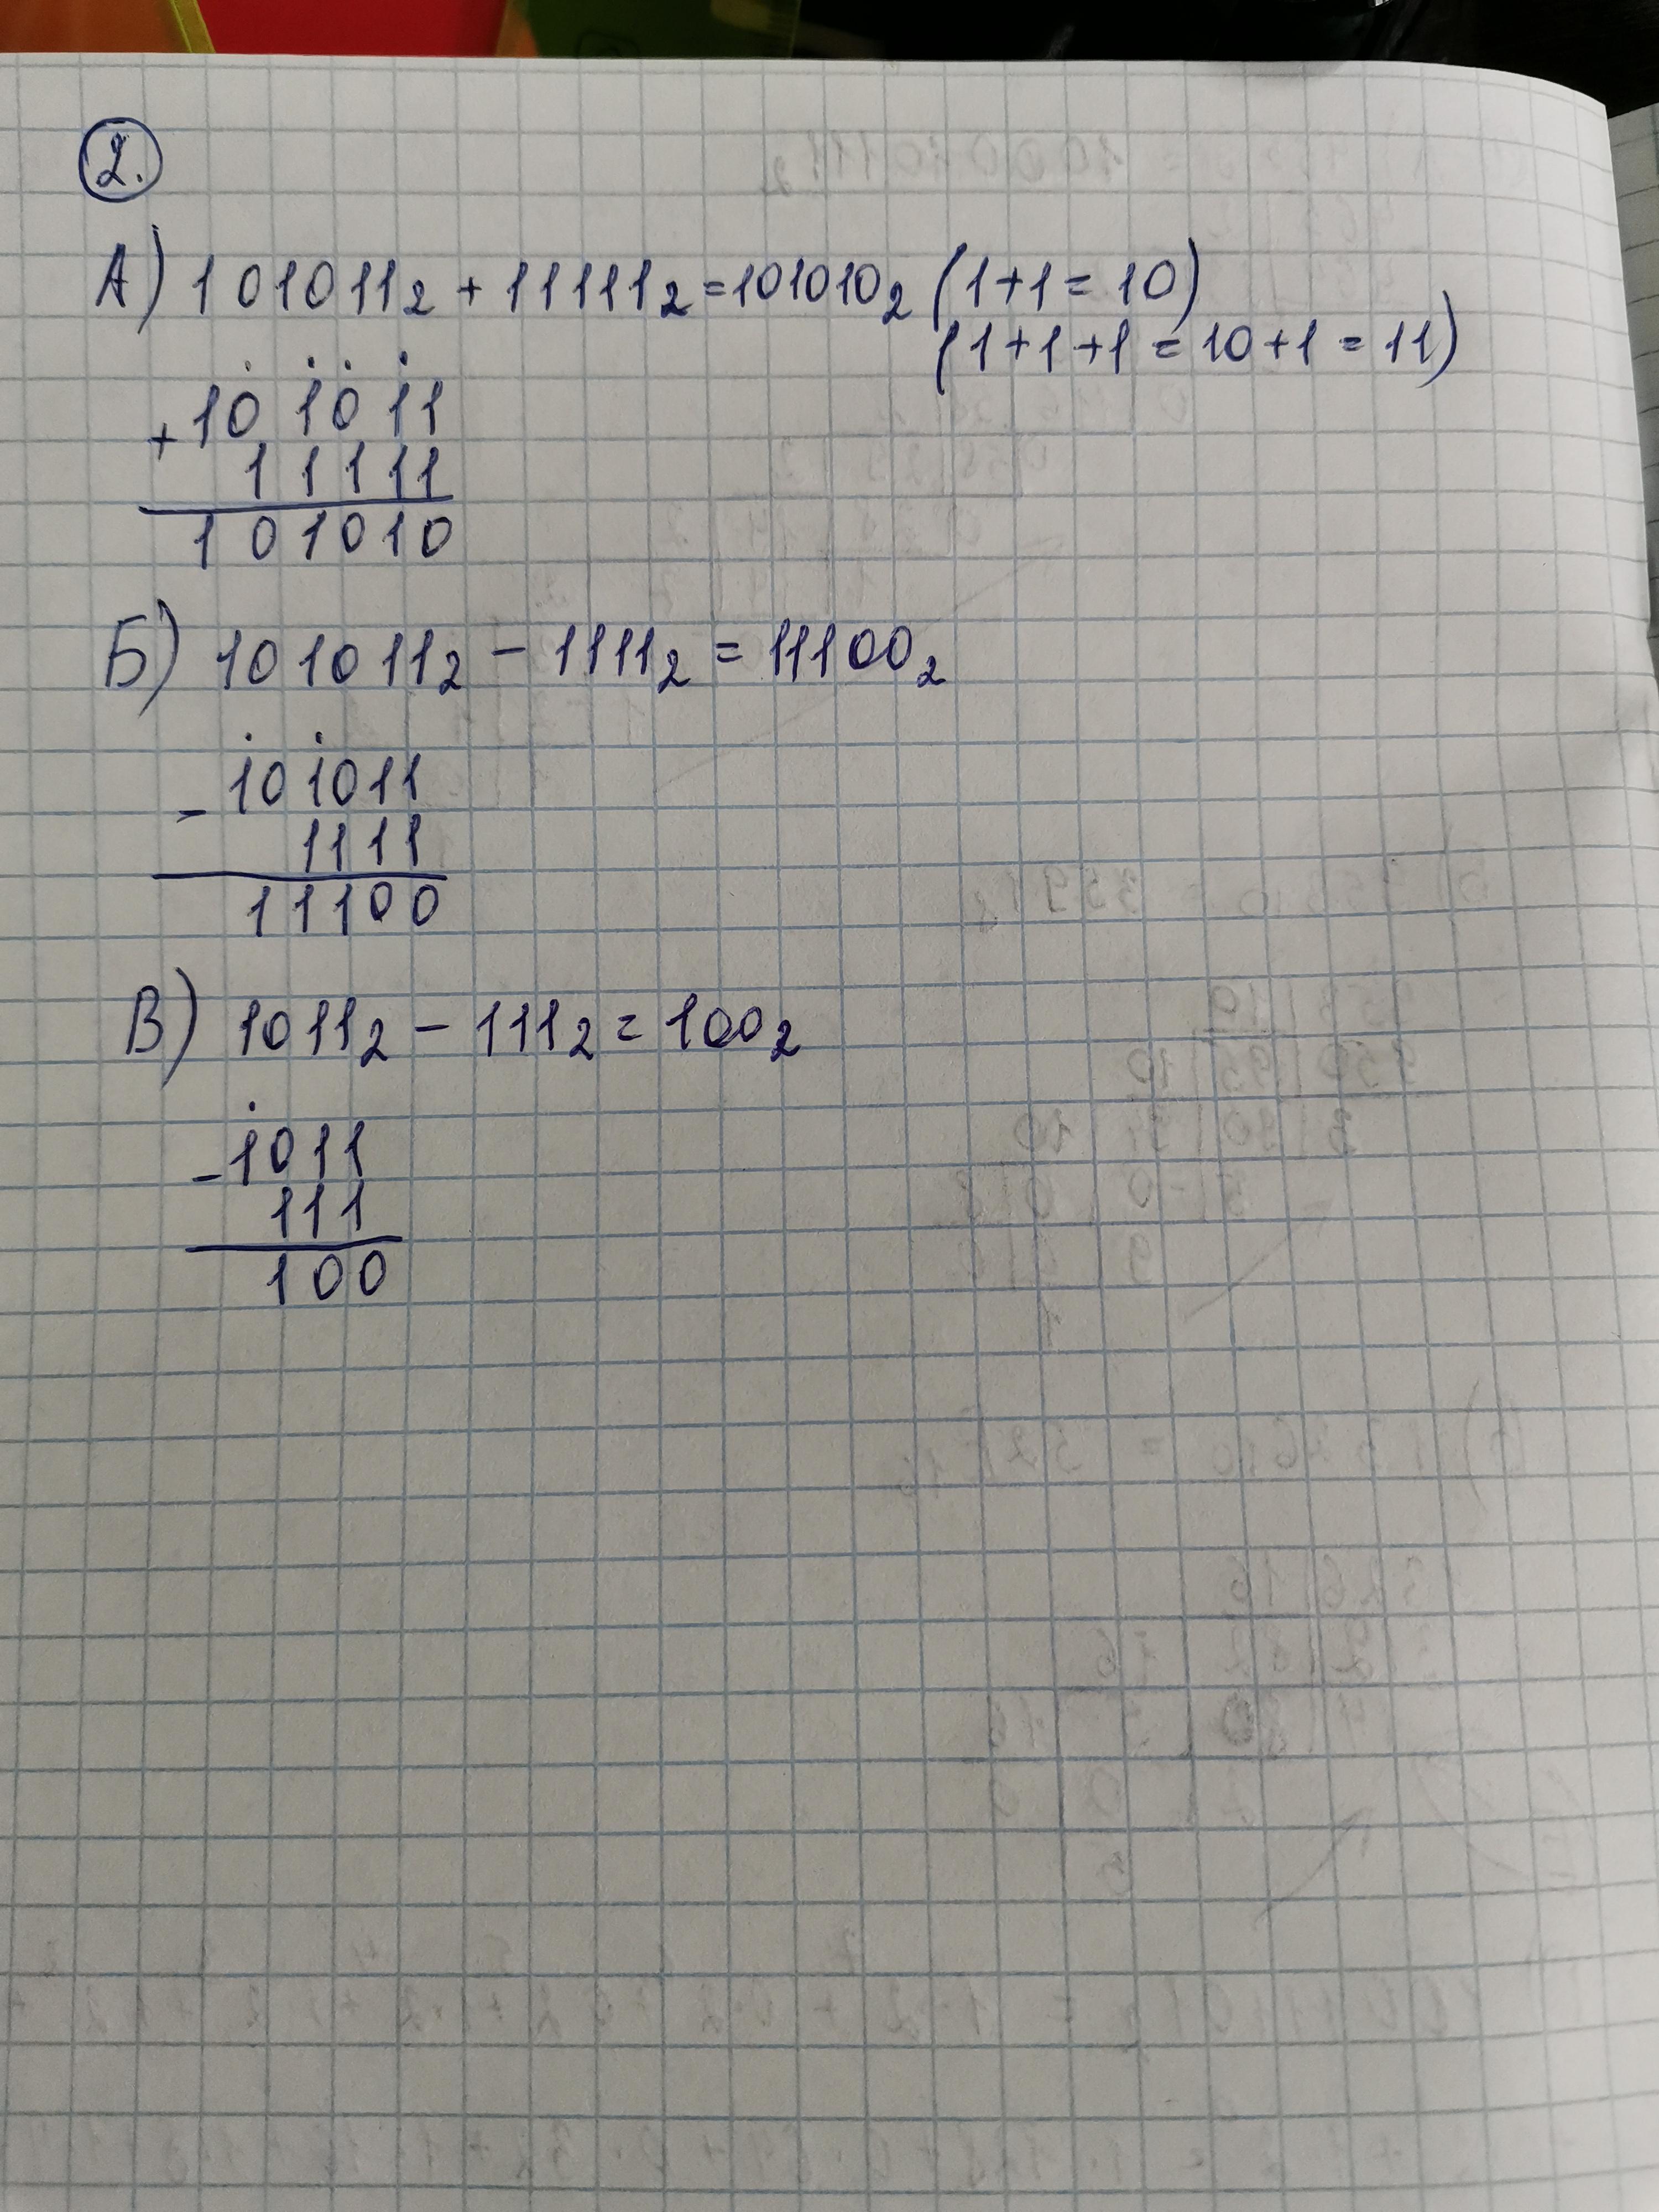 2.
А) 101011₂ + 11111₂ = 101010₂ (1+1 = 10)
(1+1+1 = 10+1 = 11)
+ 101011
11111
101010
Б) 101011₂ - 1111₂ = 11100₂
- 101011
1111
11100
В) 1011₂ - 111₂ = 100₂
- 1011
111
100